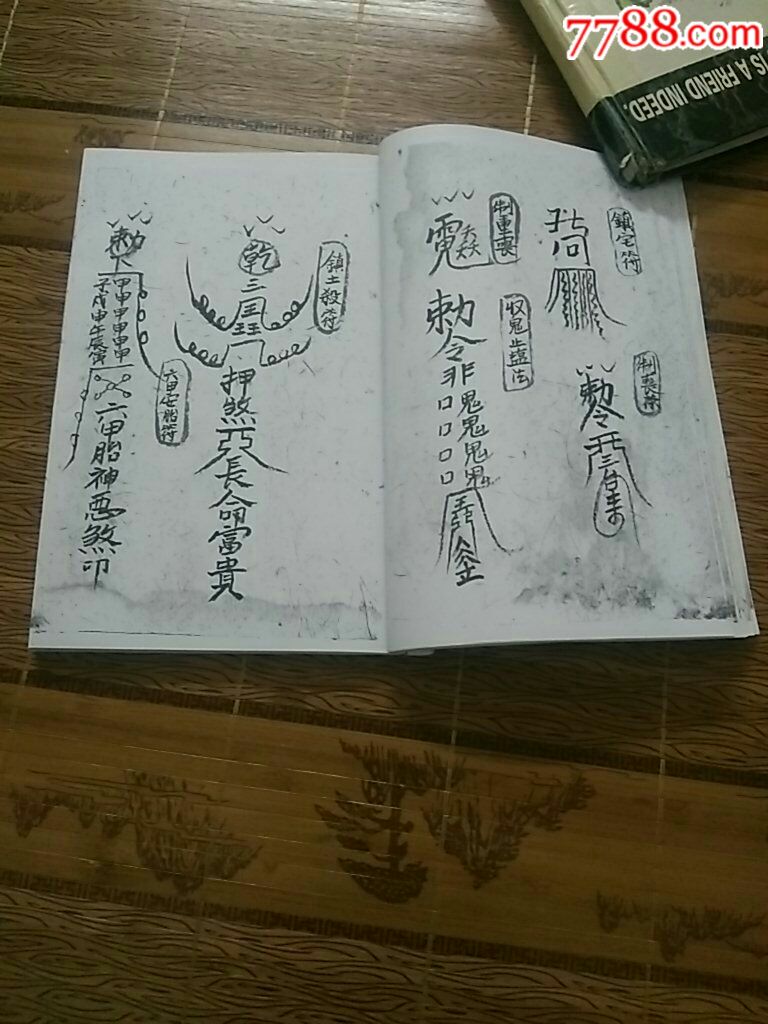 7788.com
IS A FRIEND INDEED.
鎮宅符
制喪符
制重喪
收鬼止盐法
勅令非鬼鬼鬼鬼
口口口口
勅令
三台
鎮土殺符
乾
三
押煞
長命富貴
六甲安胎符
勅
甲甲甲甲甲甲
子戌申午辰寅
六甲胎神惡煞印